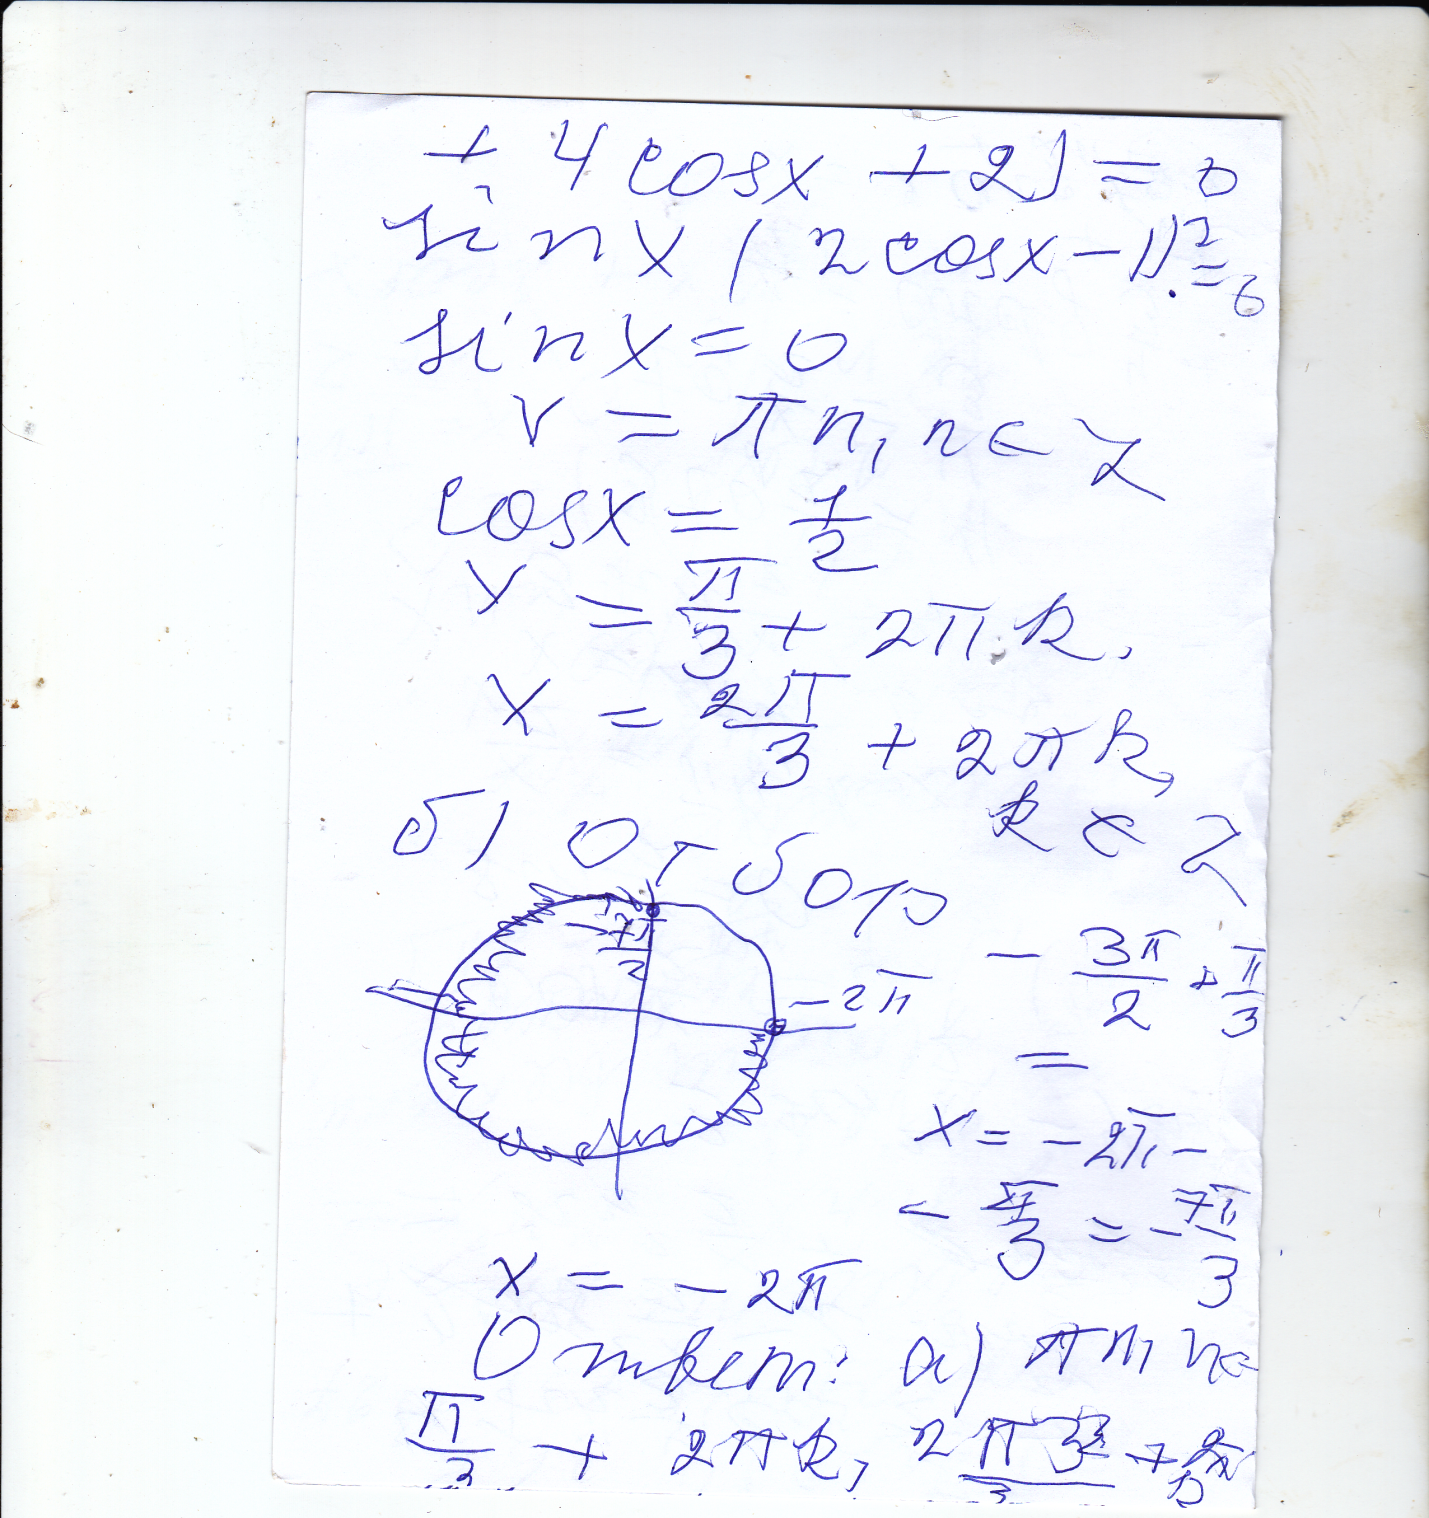 + 4 cosx + 2) = 0
sin x (2 cosx - 1)² = 0
sin x = 0
x = πn, n ∈ Z
cosx = 1/2
x = π/3 + 2πk,
x = 2π/3 + 2πk,
k ∈ Z
б) Отбор
-2π
- 3π/2 + π/3
=
x = -2π -
- π/3 = - 7π/3
x = -2π
Ответ: а) πn, n ∈
π/3 + 2πk, 2π/3 +